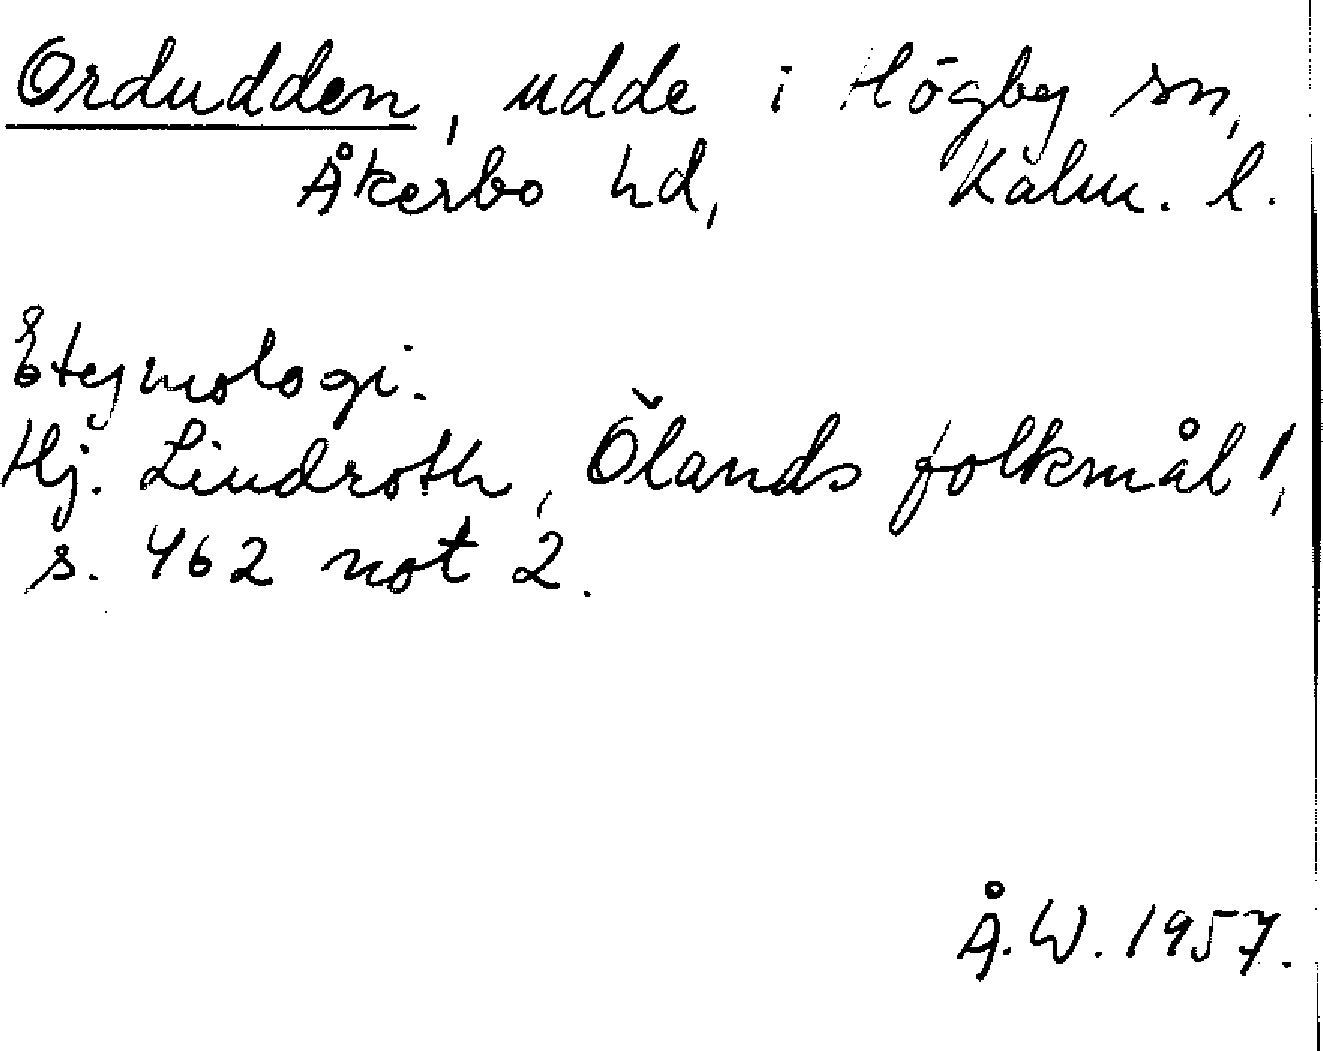 Ordudden, udde i Högby sn,
Åkerbo hd, Kalm. l.
Etymologi.
Hj. Lindroth, Ölands folkmål I,
s. 462 not 2.
Å.W. 1957.